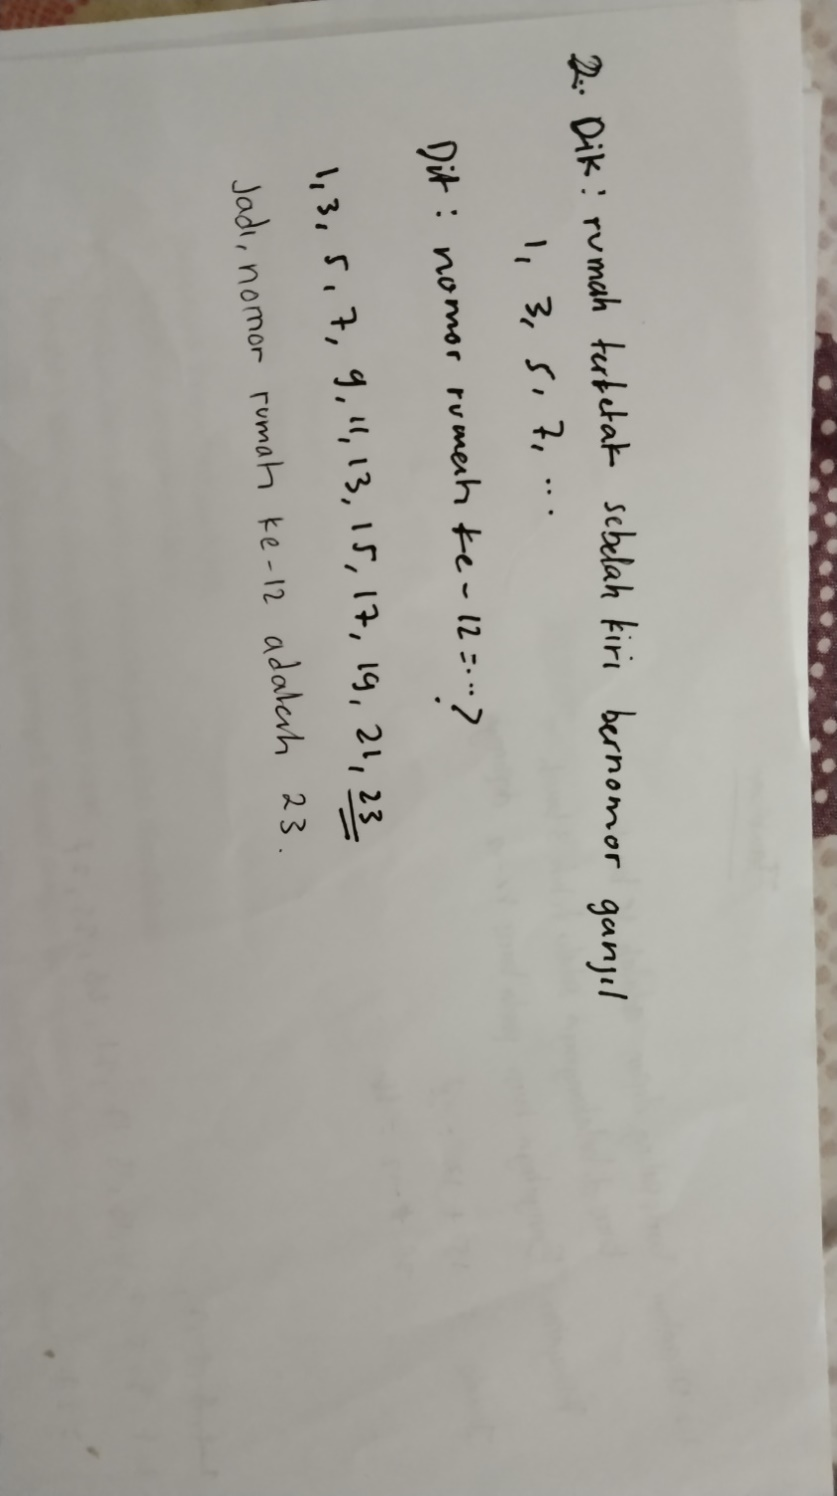 2. Dik : rumah terletak sebelah kiri bernomor ganjil
1, 3, 5, 7, ...
Dit : nomor rumah ke - 12 = ... ?
1, 3, 5, 7, 9, 11, 13, 15, 17, 19, 21, 23
Jadi, nomor rumah ke - 12 adalah 23.